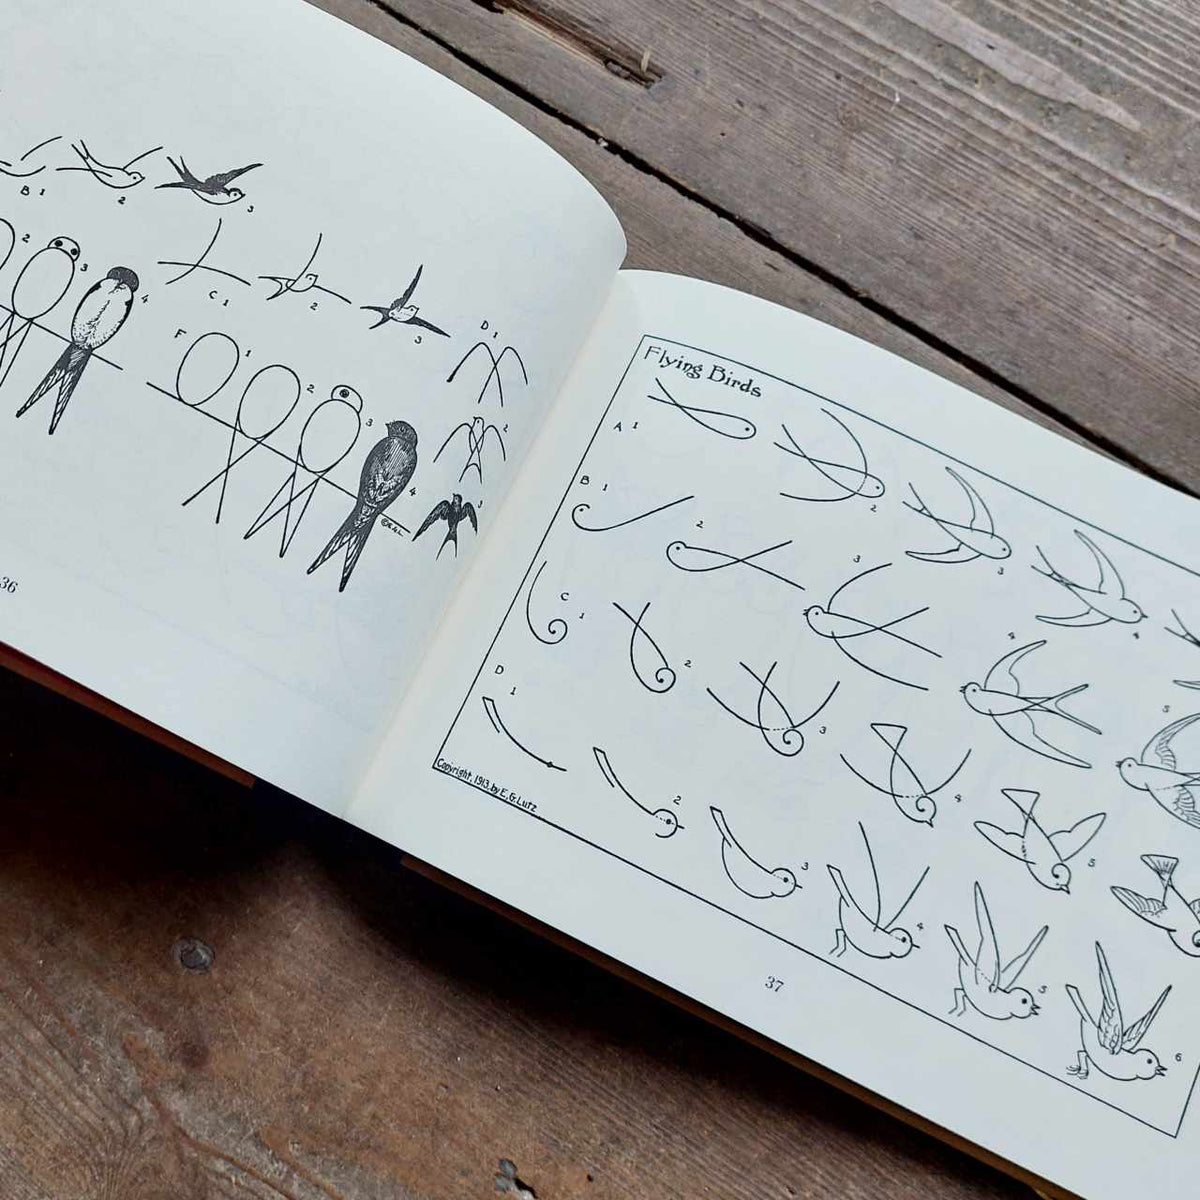 B 1
2
3
2
3
4
C 1
2
3
D 1
2
3
F
1
2
3
4
36
Flying Birds
A 1
2
3
4
B 1
2
3
4
5
C 1
2
3
4
5
D 1
2
3
4
5
6
Copyright, 1913, by E.G. Lutz
37